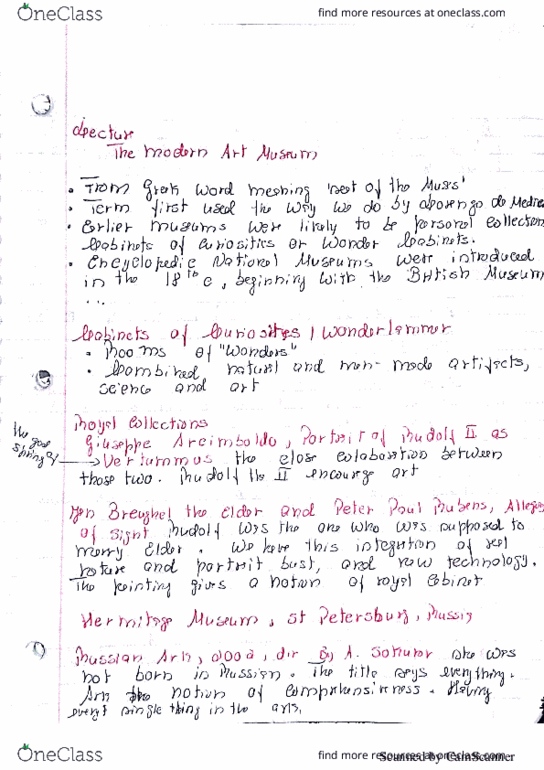 OneClass
find more resources at oneclass.com
Lecture
The modern Art Museum
• From Greek word meaning 'seat of the Muses'
• Term first used the way we do by Lorenzo de Medici
• Earlier museums were likely to be personal collection
Cabinets of Curiosities or Wonder Cabinets.
• Encyclopedic National Museums were introduced
in the 18th c, beginning with the British Museum
...
Cabinets of Curiosities / Wonderkammer
• Rooms of "Wonders"
• Combined natural and man-made artifacts,
science and art
Royal Collections
Giuseppe Arcimboldo, Portrait of Rudolf II as
the god
spring of
Vertumnus the close colaboration between
those two. Rudolf the II encourage art
Jan Breughel the Elder and Peter Paul Rubens, Allegory
of Sight Rudolf was the one who was supposed to
marry Elder. We have this integration of real
nature and portrait bust, and new technology.
The painting gives a notion of royal cabinet
Hermitage Museum, St Petersburg, Russia
Russian Ark, 2002, dir by A. Sokurov she was
not born in Russian. The title says everything.
Ark the notion of comprehensiveness. Having
every single thing in the arts.
OneClass
find more resources at oneclass.com
Scanned by CamScanner